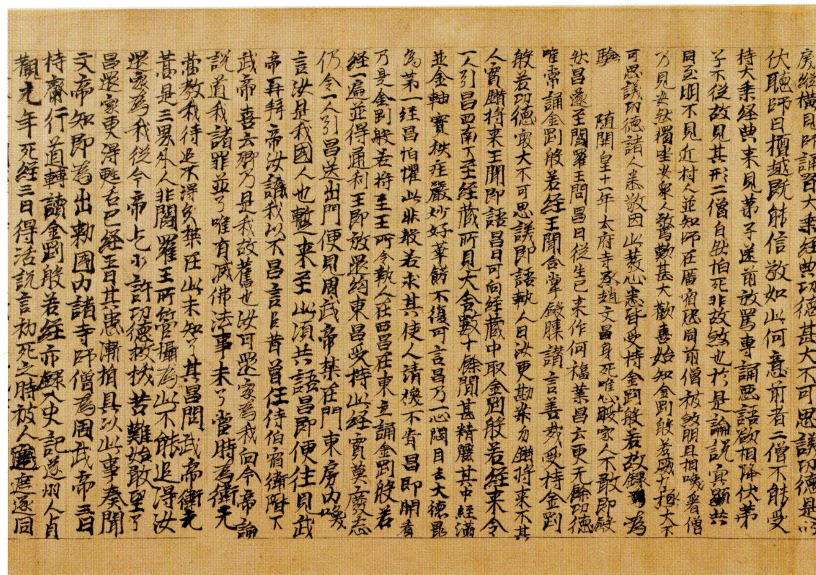 房縱橫見師誦百大乘經典功德甚大不可思議功德是以
伏聽師曰檀越既能信敬如此何意前者二僧不能受
持大乘經典來見弟子遂前放罵專誦惡語欲相降伏弟
子不從故見其形二僧自然怕死非故煞也於是論說寅顯共
同至明不見近村人並知師在廟宿恐同前僧被煞明旦相喚看僧
乃見安然獨坐眾人敬歎甚大歡喜始知金剛般若威力極大不
可思議功德諸人悉敬因此發心悉皆受持金剛般若故錄為
驗 隨開皇十一年太府寺丞趙文昌身死唯心暖家人不敢即殮
然昌遂至閻羅王問昌曰從生已來作何福業昌云更无餘功德
唯常誦金剛般若經王聞合掌斂膝讚言善哉受持金剛
般若功德寔大不可思議即語執人曰汝更勘案勿錯將來不其
人實錯將來王聞即語昌曰可向經藏中取金剛般若經來令
一人引昌西南下至經藏所見大舍數十餘間甚精麗其中經滿
並金軸寶袟莊嚴妙好華飾不復可言昌乃一心閇目
為第一經昌怕懼此非般若求其使人請換不肯昌即開看
乃是金剛般若將至王所令執人在西昌在東立誦金剛般若
經一遍並得通利王即放還約束昌受持此經實莫廢忘
仍令一人引昌送出門便見周武帝禁在門東房內喚
言汝是我國人也蹔來至此須共語昌即便往見武
帝再拜帝汝識我以不昌言臣昔曾任侍伯宿衛陛下
武帝喜云卿乃是我故舊也汝可還家為我向今帝論
說道我諸罪並了唯有滅佛法事未了當時為衛元
嵩教我待追不得久禁在此未知了其昌問武帝衛元
嵩是三界外人非閻羅王所管攝為此不能追得汝
還家為我從今帝乞少許功德救拔苦難始敢望了
昌還家更得甦右已經三日其患漸損具以此事奏聞
文帝知即為出勅國內諸寺師僧為周武帝三日
持齋行道轉讀金剛般若經亦錄入史記遂州人貞
觀元年死經三日得活說言初死之時被人逐同